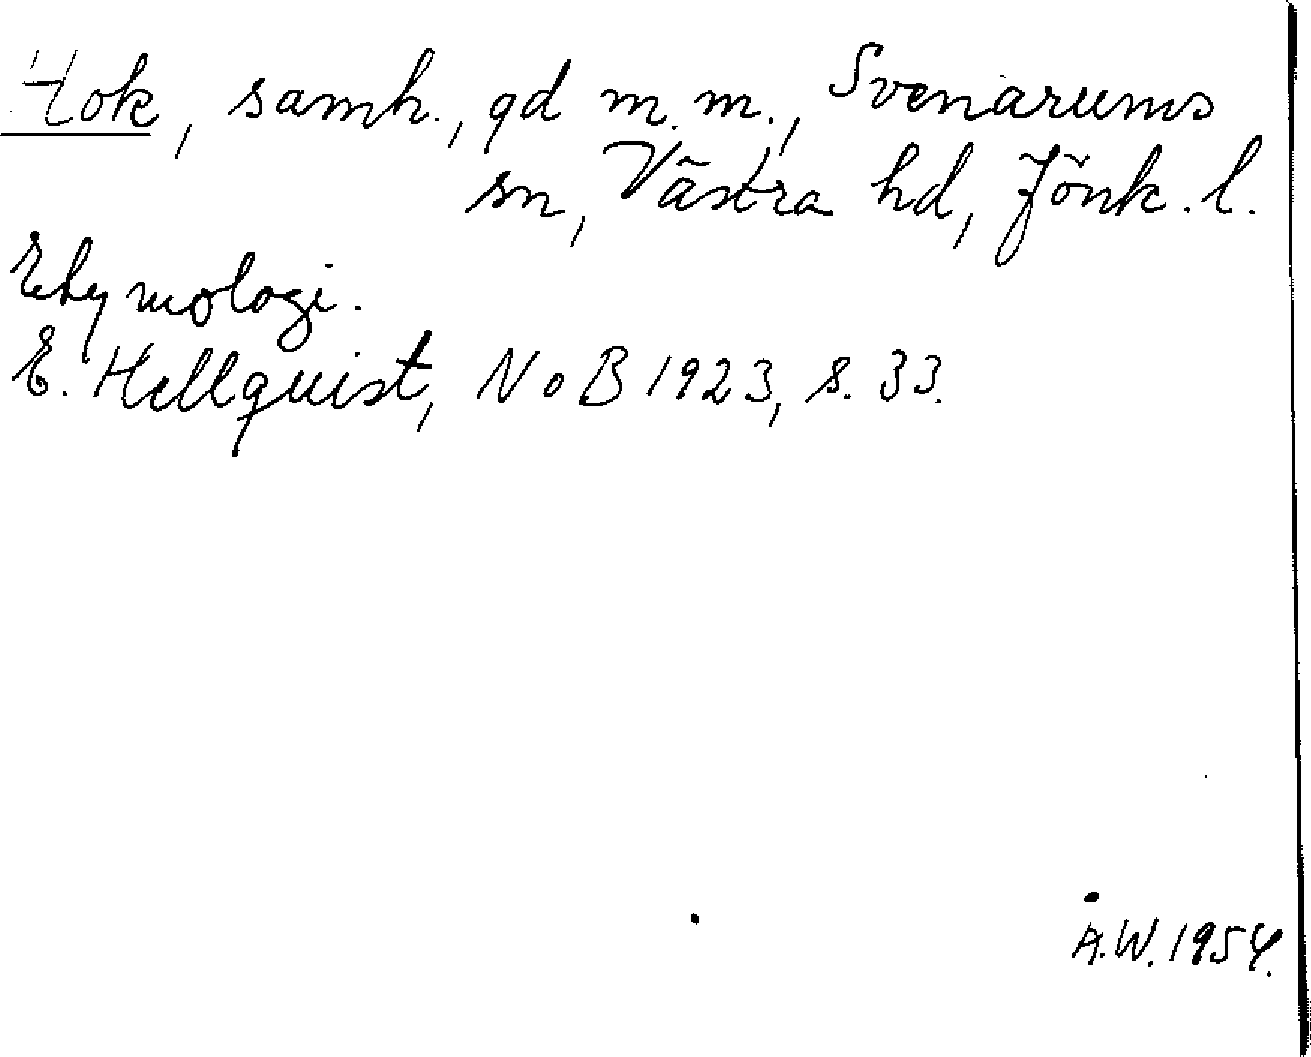 Hok, samh., gd m. m., Svenarums
sn, Västra hd, Jönk. l.
Etymologi.
E. Hellquist, NoB 1923, s. 33.
Å.W. 1954.